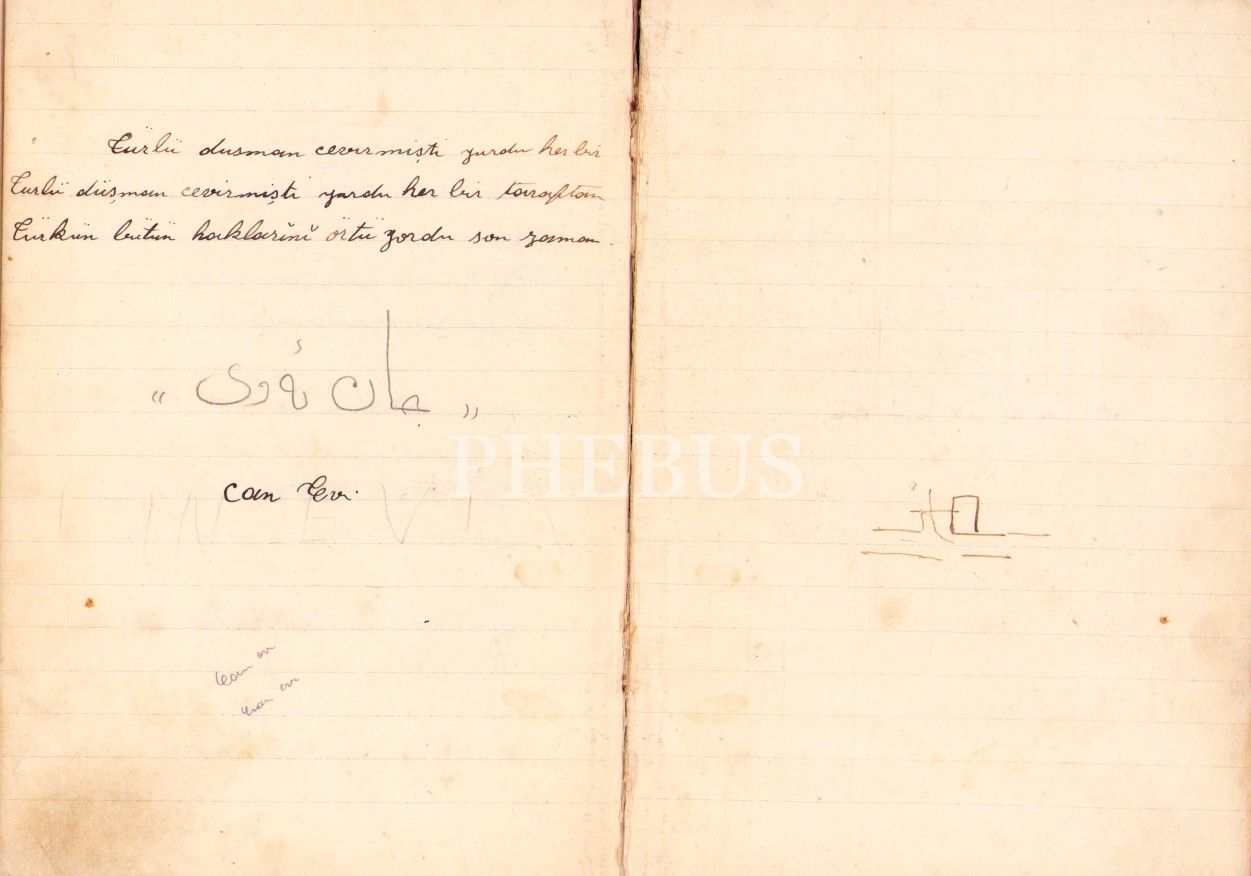 Türlü dusman cevirmişti yurdu her bir
Turlü düşman cevirmişti yurdu her bir taraftan
Türkün bütün haklarĭnĭ örtü yordu son zaman.
« جان ئه وى »
PHEBUS
can Evi
CAN EVİ
Can evi
can evi